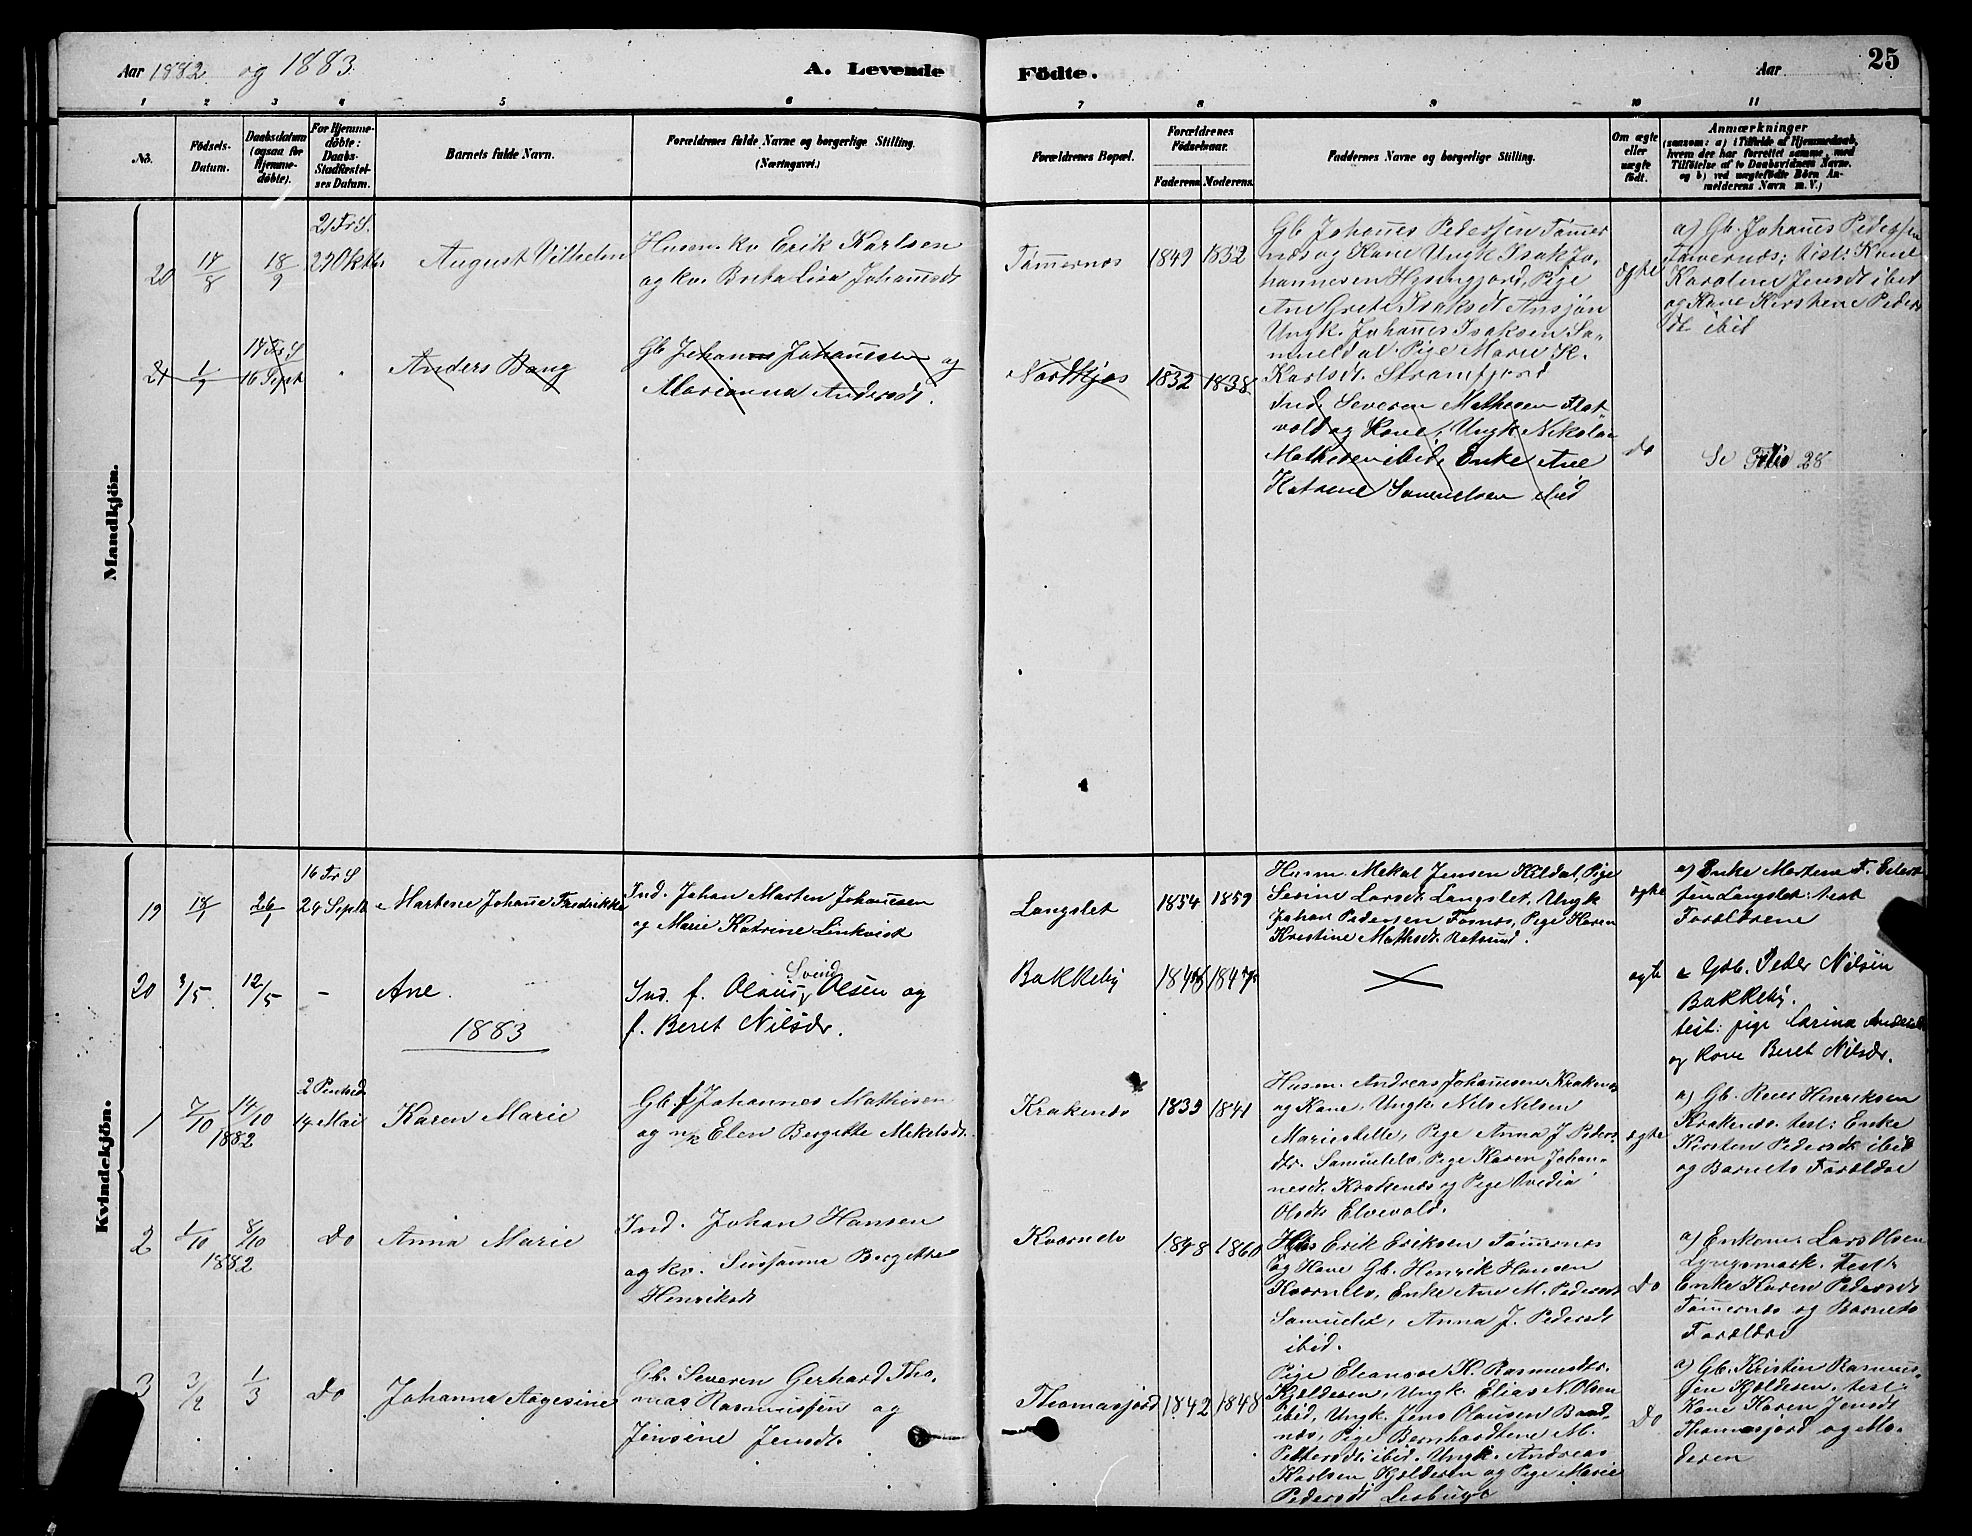 Aar 1882 og 1883
A. Levende Födte.
Aar
25
1 2 3 4 5 6 7 8 9 10 11
No.
Födsels-
Datum.
Daabsdatum
(ogsaa for
Hjemme-
döbte).
For Hjemme-
döbte:
Daabs-
Stadfæstel-
ses Datum.
Barnets fulde Navn.
Forældrenes fulde Navne og borgerlige Stilling.
(Næringsvei.)
Forældrenes Bopæl.
Forældrenes
Födselsaar.
Faderens. Moderens.
Faddernes Navne og borgerlige Stilling.
Om ægte
eller
uægte
födt.
Anmærkninger
(saasom: a) i Tilfælde af Hjemmedaab,
hvem der har forrettet samme, med
Tilföielse af to Daabsvidners Navne,
og b) ved uægtefödte Börn An-
melderens Navn m. V.)
Mandkjön.
20
17/8
18/9
21 Tr S.
29 Oktbr
August Vilhelm
Husm. kv Erik Karlsen
og kv. Brita Lisa Johannsdt
Tömernæs
1849 1852
Gb Johanes Pedersen Tömer
næs og Kone Ungk Isak Jo-
hannesen Hysingjord, Pige
Ane Grete Isaksdt Ansjön
Ungk. Johanes Isaksen Sa-
mueldal. Pige Marie K.
Karlsdt. Strømfjord
ægte
a) Gb. Johanes Pedersen
Tömernæs; test: Kone
Karoline Jensdt ibid
og Kone Kirstine Peders
dt ibid
21
1/9
17 Tr S
16 Sept
Anders Bang
Gb Johannes Johanesen og
Marianna Andersdt.
Nordkjos
1832 1838
Ind. Severen Mathesen Flat-
vold og Kone, Ungk Nikolai
Mathesen ibid, Enke Ane
Katrine Samuelsen ibid
Do
Se Folio 28
Kvindekjön.
19
18/1
26/1
16 Tr S
24 Septb
Martene Johane Fredrikke
Ind. Johan Marten Johanesen
og Marie Katrine Linkvist
Langslet
1854 1859
Husm. Mekal Jensen Kildal, Pige
Serine Larsdt. Langslet, Ungk
Johan Pedersen Fosnæs, Pige Karen
Kristine Mathsdt. Rotsund.
ægte
a) Enke Martene F. Eilert
sen Langslet: test
Forældrene
20
3/5
12/5
-
Ane.
Ind. f. Olaus Svend Olsen og
f. Beret Nilsdr.
Bakkeby
1845 1847
ægte
a Gb. Peder Nilsen
Bakkeby.
test: pige Carina Andersdt
og Kone Beret Nilsdr.
1883
1
7/10 14/10
1882
2 Pintsed
14 Mai
Karen Marie
Gb. f Johannes Mathisen
og n/k Elen Bergitte Mekelsdt.
Krakenæs
1839 1841
Husm. Andreas Johannesen Krakenæs
og Kone, Ungk. Nils Nelsen
Mariestelle, Pige Anna J Peders-
dtr. Samuelelv, Pige Karen Johan-
nesdt. Krakenæs og Pige Ovidia
Olsdt. Elvevold.
ægte
a) Gb. Reier Henriksen
Krakenæs test: Enke
Kirsten Pedersdt ibid
og Barnets Forældre
2
1/10 8/10
1882
Do
Anna Marie
Ind. Johan Hansen
og kv. Susanna Bergitte
Henriksdt
Kvœrnelv
1848 1860
Erik Eriksen Tömernæs
og Kone Gb. Henrik Hansen
Kvœrnelv, Enke Ane M. Pedersdt
Samuelelv, Anna J. Pedersdt
ibid.
Do
a) Enkem. Lars Olsen
Lyngsmark. Test:
Enke Karen Pedersdt
Tömernæs og Barnets
Forældre
3
3/2
1/3
Do
Johanna Aagesine
Gb. Severen Gerhard Tho-
mas Rasmussen og
Jensine Jensdt.
Thomasjord
1842 1848
Pige Eleanore K. Rasmusdtr.
Kjeldesen, Ungk. Elias N. Olsen
ibid, Ungk. Jens Olausen Band-
næs, Pige Bernhardtene M.
Pettersdt ibid. Ungk. Andreas
Karlsen Kjoldesen og Pige Marie
Pedersdt
Do
a) Gb. Kristin Rasmus-
sen Kjeldesen, test.
Kone Karen Jensdt
Thomasjord og Mo-
deren